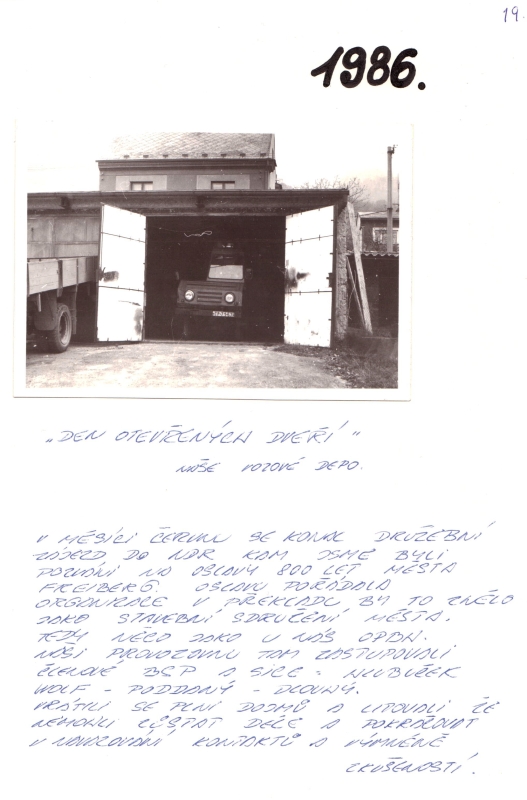 19.
1986.
„DEN OTEVŘENÝCH DVEŘÍ"
NAŠE VOZOVÉ DEPO.
V MĚSÍCI ČERVNU SE KONAL DRUŽEBNÍ
ZÁJEZD DO NDR KAM JSME BYLI
POZVÁNI NA OSLAVY 800 LET MĚSTA
FREIBERG. OSLAVU POŘÁDALA
ORGANIZACE V PŘEKLADU BY TO ZNĚLO
JAKO STAVEBNÍ SDRUŽENÍ MĚSTA.
TEDY NĚCO JAKO U NÁS OPBH.
NAŠI PROVOZOVNU TAM ZASTUPOVALI
ČLENOVÉ BSP A SICE - HLUBUČEK
WOLF - PODDANÝ - DLOUHÝ.
VRÁTILI SE PLNI DOJMŮ A LITOVALI ŽE
NEMOHLI ZŮSTAT DÉLE A POKRAČOVAT
V NAVAZOVÁNÍ KONTAKTŮ A VÝMĚNĚ
ZKUŠENOSTÍ.